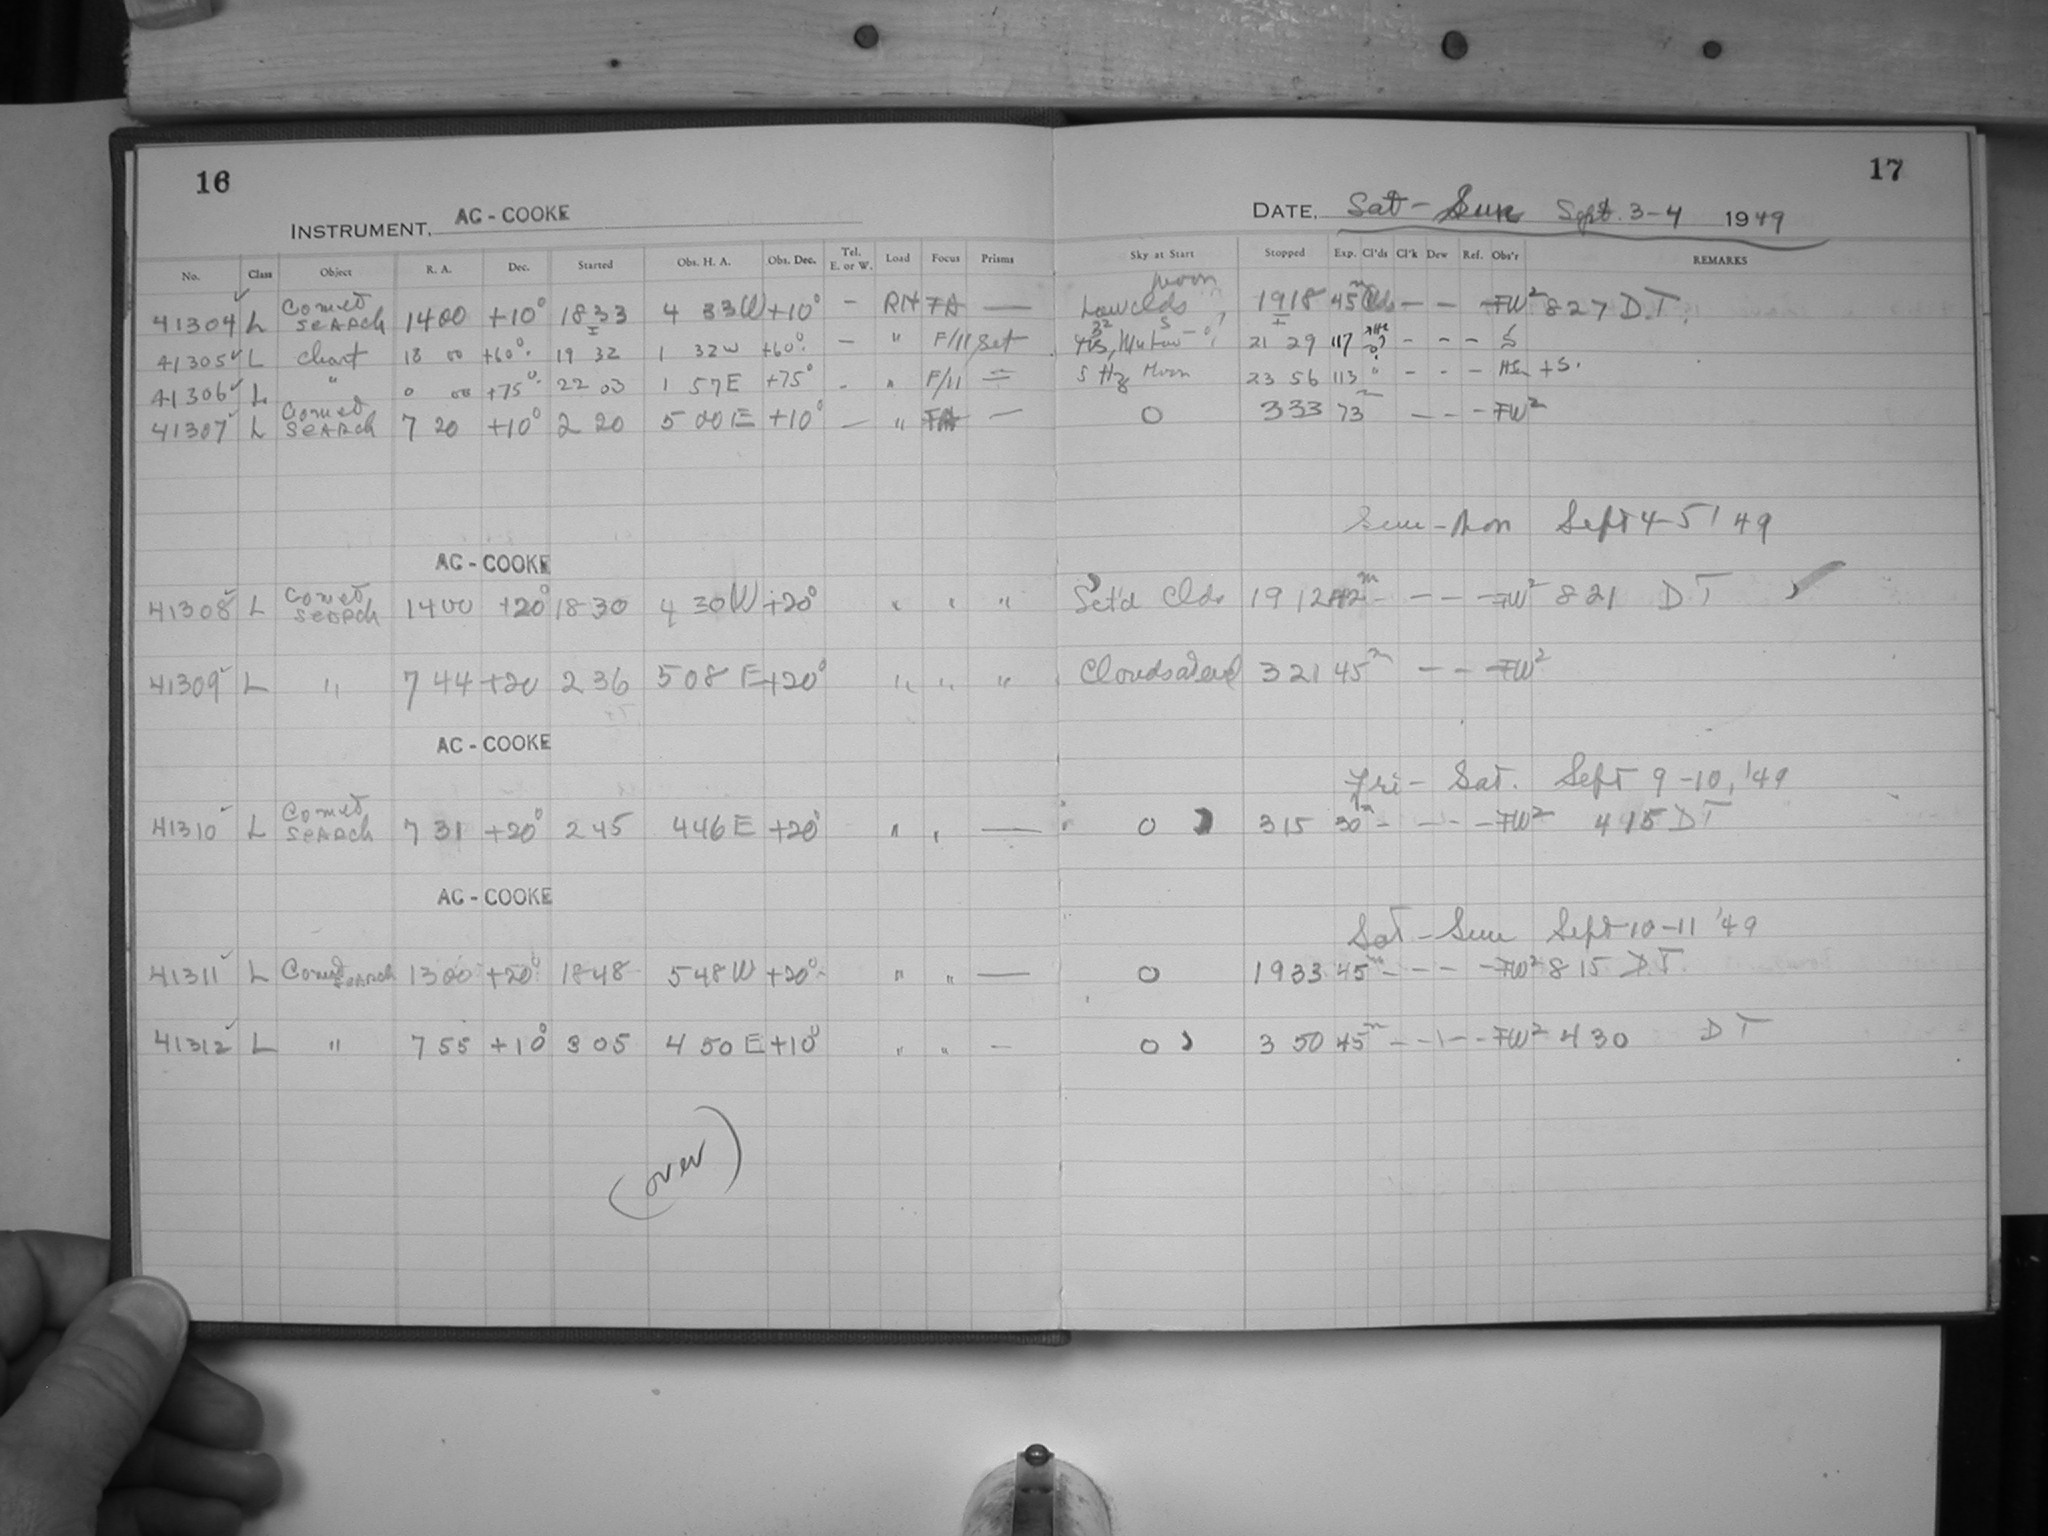 16
17
INSTRUMENT. AC-COOKE
DATE. Sat - Sun Sept. 3-4 1949
No. Class Object R. A. Dec. Started Obs. H. A. Obs. Dec. Tel. E. or W. Load Focus Prisms Sky at Start Stopped Exp. Cl'ds Cl'k Dew Ref. Obs'r REMARKS
Moon
41304 ✓ L Comet Search 1400 +10° 1833 4 33W +10° — RH FA — Low clds 1918 45m Clds — — — FW² 827 D.T.
41305 ✓ L Chart 18 00 +60° 19 32 1 32W +60° — " F/11 21 29 117 - - - S
41306 ✓ L " 0 00 +75° 22 03 1 57E +75° - " F/11 — S Hz Moon 23 56 113 - - - + S.
41307 ✓ L Comet Search 7 20 +10° 2 20 5 00E +10° — " FA — O 333 73m — — - FW²
Sun - Mon Sept 4-5 '49
AC-COOKE
41308 ✓ L Comet Search 1400 +20° 1830 4 30W +20° " " " Sct'd Clds 1912 42m - — — — FW² 821 DT ✓
41309 ✓ L " 7 44 +20 2 36 508 E +20° " " " 321 45m — — FW²
AC-COOKE
Fri - Sat. Sept 9-10, '49
41310 ✓ L Comet Search 7 31 +20° 245 446E +20° " " — O ☽ 315 30m - — — — FW² 415 DT
AC-COOKE
Sat - Sun Sept 10-11 '49
41311 ✓ L Comet Search 1300 +20° 1848 548W +20° " " — O 1933 45m - - — — FW² 815 DT.
41312 ✓ L " 755 +10° 305 450E +10° " " — O ☽ 350 45m - - - - FW² 430 DT
(over)